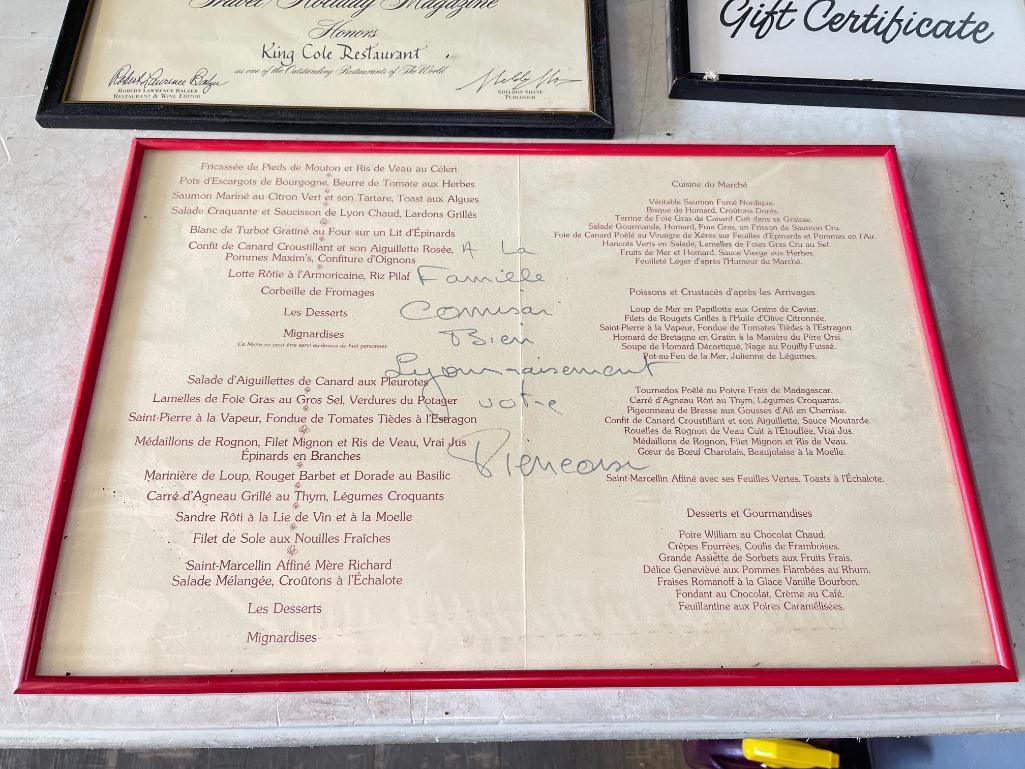 Travel/Holiday Magazine
Honors
King Cole Restaurant
as one of the Outstanding Restaurants of The World
Robert Lawrence Balzer
Restaurant & Wine Editor
Sheldon Shane
Publisher
Gift Certificate
Fricassée de Pieds de Mouton et Ris de Veau au Céleri
Pots d'Escargots de Bourgogne, Beurre de Tomate aux Herbes
Saumon Mariné au Citron Vert et son Tartare, Toast aux Algues
Salade Craquante et Saucisson de Lyon Chaud, Lardons Grillés
Blanc de Turbot Gratiné au Four sur un Lit d'Épinards
Confit de Canard Croustillant et son Aiguillette Rosée,
Pommes Maxim's, Confiture d'Oignons
Lotte Rôtie à l'Armoricaine, Riz Pilaf
Corbeille de Fromages
Les Desserts
Mignardises
Ce Menu ne peut être servi au-dessus de huit personnes
Salade d'Aiguillettes de Canard aux Pleurotes
Lamelles de Foie Gras au Gros Sel, Verdures du Potager
Saint-Pierre à la Vapeur, Fondue de Tomates Tièdes à l'Estragon
Médaillons de Rognon, Filet Mignon et Ris de Veau, Vrai Jus
Épinards en Branches
Marinière de Loup, Rouget Barbet et Dorade au Basilic
Carré d'Agneau Grillé au Thym, Légumes Croquants
Sandre Rôti à la Lie de Vin et à la Moelle
Filet de Sole aux Nouilles Fraîches
Saint-Marcellin Affiné Mère Richard
Salade Mélangée, Croûtons à l'Échalote
Les Desserts
Mignardises
A La
Famille
Comisar
Bien
Lyonnaisement
votre
Cuisine du Marché
Véritable Saumon Fumé Nordique.
Bisque de Homard, Croûtons Dorés.
Terrine de Foie Gras de Canard Cuit dans sa Graisse.
Salade Gourmande, Homard, Foie Gras, un Frisson de Saumon Cru.
Foie de Canard Poêlé au Vinaigre de Xérès sur Feuilles d'Épinards et Pommes en l'Air.
Haricots Verts en Salade, Lamelles de Foies Gras Cru au Sel.
Fruits de Mer et Homard, Sauce Vierge aux Herbes.
Feuilleté Léger d'après l'Humeur du Marché.
Poissons et Crustacés d'après les Arrivages
Loup de Mer en Papillotte aux Grains de Caviar.
Filets de Rougets Grillés à l'Huile d'Olive Citronnée.
Saint-Pierre à la Vapeur, Fondue de Tomates Tièdes à l'Estragon.
Homard de Bretagne en Gratin à la Manière du Père Orsi.
Soupe de Homard Décortiqué, Nage au Pouilly-Fuissé.
Pot-au-Feu de la Mer, Julienne de Légumes.
Tournedos Poêlé au Poivre Frais de Madagascar.
Carré d'Agneau Rôti au Thym, Légumes Croquants.
Pigeonneau de Bresse aux Gousses d'Ail en Chemise.
Confit de Canard Croustillant et son Aiguillette, Sauce Moutarde.
Rouelles de Rognon de Veau Cuit à l'Étouffée, Vrai Jus.
Médaillons de Rognon, Filet Mignon et Ris de Veau.
Cœur de Bœuf Charolais, Beaujolaise à la Moelle.
Saint-Marcellin Affiné avec ses Feuilles Vertes, Toasts à l'Échalote.
Desserts et Gourmandises
Poire William au Chocolat Chaud.
Crêpes Fourrées, Coulis de Framboises.
Grande Assiette de Sorbets aux Fruits Frais.
Délice Geneviève aux Pommes Flambées au Rhum.
Fraises Romanoff à la Glace Vanille Bourbon.
Fondant au Chocolat, Crème au Café.
Feuillantine aux Poires Caramélisées.